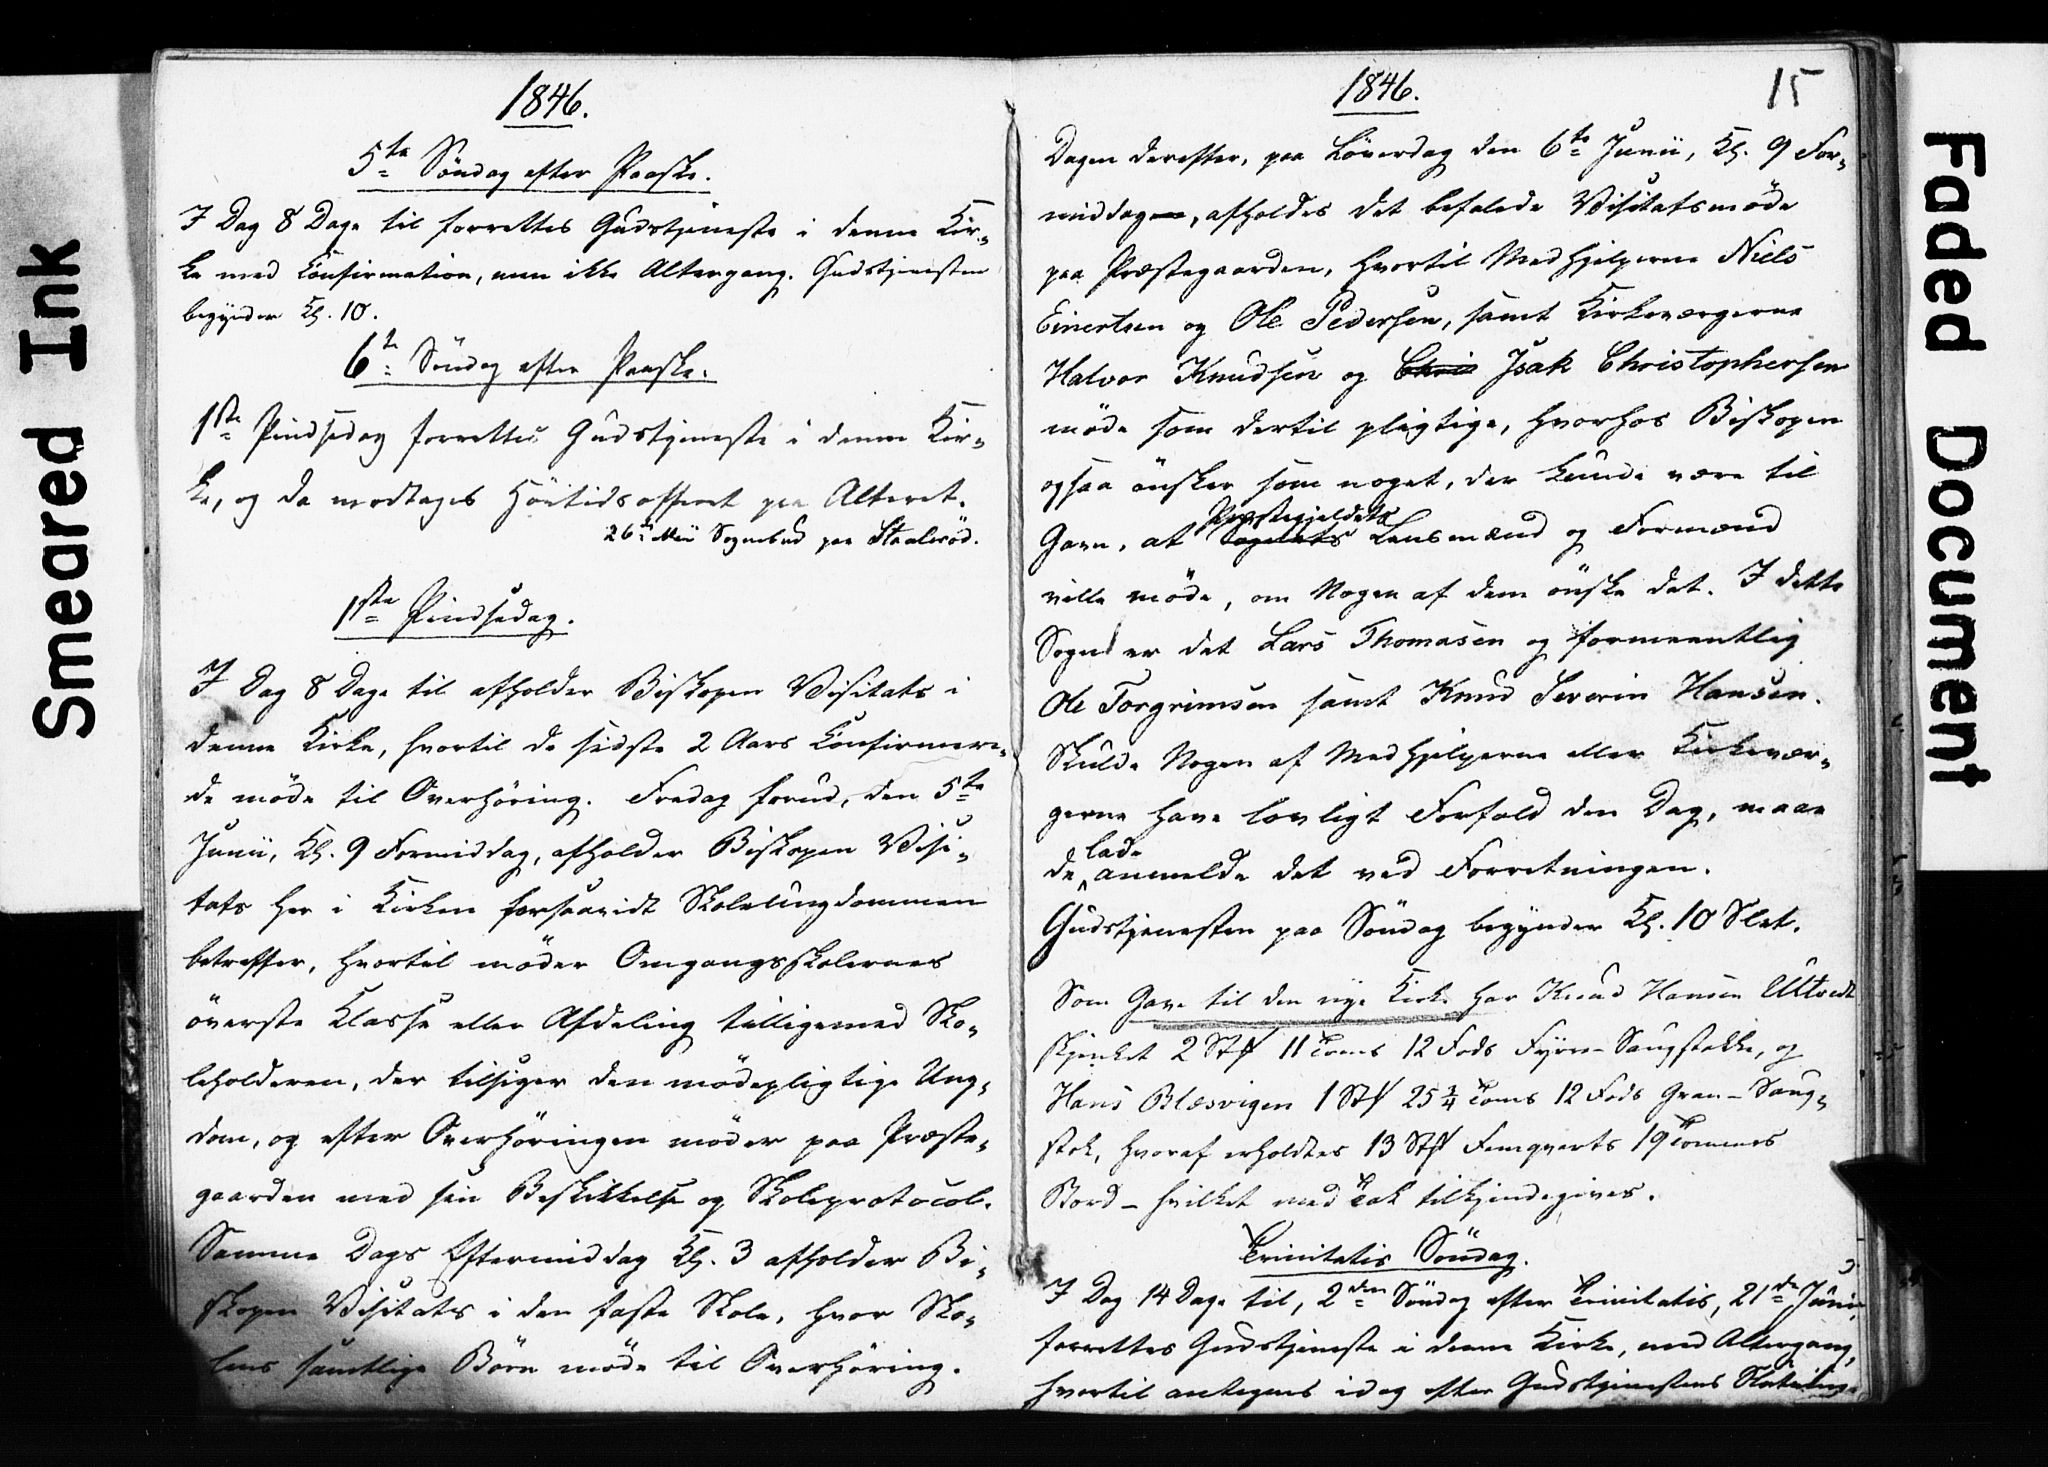 Smeared Ink
1846.
5te Söndag efter Paaske.
I Dag 8 Dage til forrettes Gudstjeneste i denne Kir-
ke med Confirmation, men ikke Altergang. Gudstjenesten
begynder Kl. 10.
6te Söndag efter Paaske.
1ste Pindsedag forrettes Gudstjeneste i denne Kir-
ke, og da modtages Höitidsofferet paa Alteret.
26de Mai Sognebud paa Staalerød.
1ste Pindsedag.
I Dag 8 Dage til afholder Biskopen Visitats i
denne Kirke, hvortil de sidste 2 Aars Confirmere-
de møde til Overhöring. Fredag forud, den 5te
Junii, Kl. 9 Formiddag, afholder Biskopen Visi-
tats her i Kirken forsaavidt Skoleungdommen
betreffer, hvortil møder Omgangsskolernes
överste Klasse eller Afdeling tilligemed Sko-
leholderen, der tilsiger den mødepligtige Ung-
dom, og efter Overhöringen møder paa Præste-
gaarden med sin Beskikkelse og Skoleprotocol.
Samme Dags Eftermiddag Kl. 3 afholder Bi-
skopen Visitats i den faste Skole, hvor Sko-
lens samtlige Börn møde til Overhöring.
1846.
15
Dagen derefter, paa Löverdag den 6te Junii, Kl. 9 For-
middag, afholdes det befalede Visitatsmøde
paa Præstegaarden, hvortil Medhjelperne Niels
Einertsen og Ole Pedersen, samt Kirkeværgerne
Halvor Knudsen og Chris Isak Christophersen
møde som dertil pligtige, hvorhos Biskopen
ogsaa önsker som noget, der kunde være til
Præstegjeldets
Gavn, at Sognets Lensmænd og Formænd
ville møde, om Nogen af dem önske det. I dette
Sogn er det Lars Thomasen og formeentlig
Ole Torgrimsen samt Knud Severin Hansen.
Skulde Nogen af Medhjelperne eller Kirkevær-
gerne have lovligt Forfald den Dag, maae
lade
de anmelde det ved Forretningen.
Gudstjenesten paa Söndag begynder Kl. 10 Slet.
Som Gave til den nye Kirke har Knud Hansen Ultvedt
skjenket 2 Stk 11 Toms 12 Fods Fyrre-Saugstokke, og
Hans Blæsvigen 1 Stk 25 3/4 Toms 12 Fods Gran-Saug-
stok, hvoraf erholdtes 13 Stk Femqvarts 19 Tommes
Bord - hvilket med Tak tilkjendegives.
Trinitatis Söndag.
I Dag 14 Dage til, 2den Söndag efter Trinitatis, 21de Junii,
forrettes Gudstjeneste i denne Kirke, med Altergang,
hvortil antegnes idag efter Gudstjenestens Slutning.
Faded Document